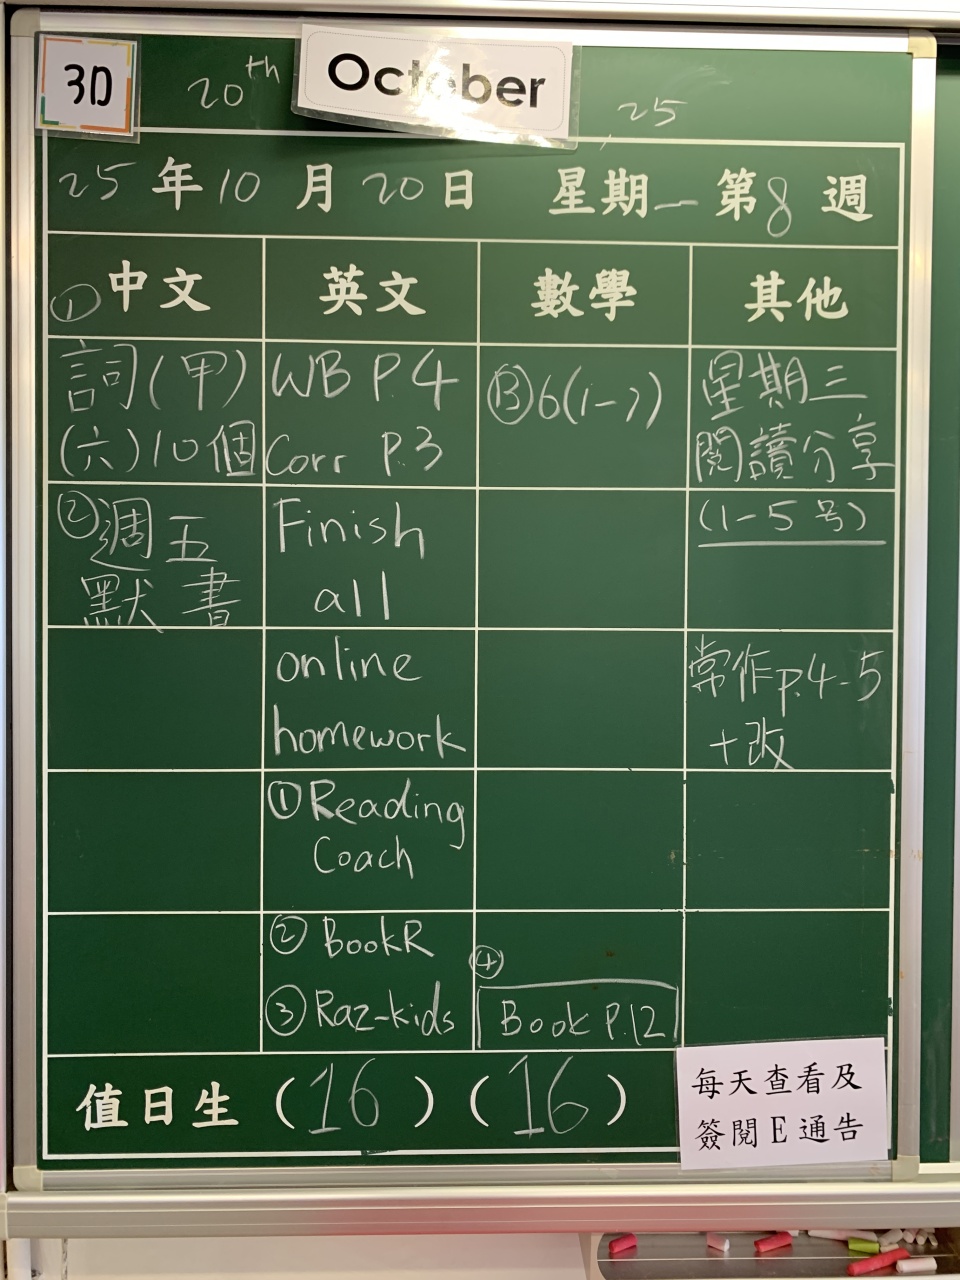 3D
20th October 25
25年10月20日 星期一 第8週
中文 英文 數學 其他
①
詞(甲)
(六)10個
②週五
默書
WB P.4
Corr P.3
Finish
all
online
homework
①Reading
Coach
②BookR
③Raz-kids
Ⓑ6(1-7)
④
Book P.12
星期三
閱讀分享
(1-5号)
常作p.4-5
+改
值日生 (16) (16)
每天查看及
簽閱E通告